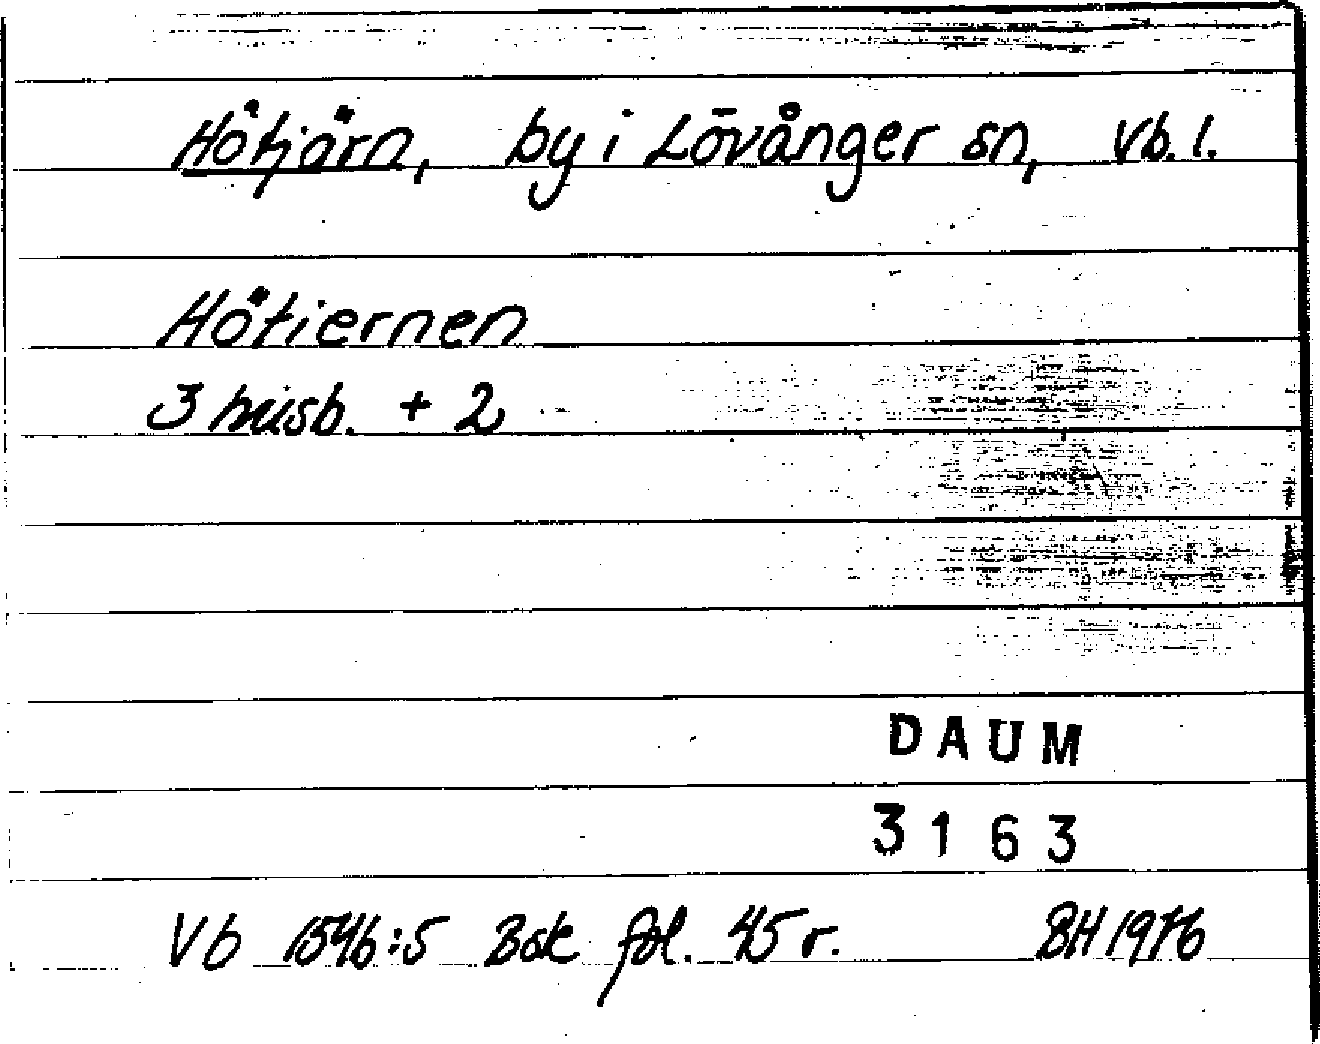 Hötjärn, by i Lövånger sn, Vb. l.
Hötiernen
3 husb. + 2
DAUM
3163
Vb 1546:5 Bsk fol. 45 r. BH 1976